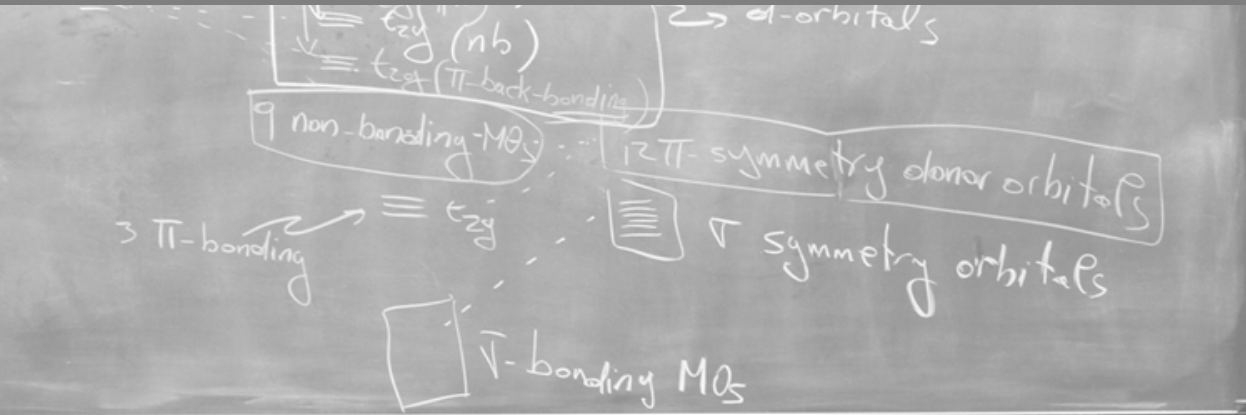 d-orbitals
t2g (nb)
t2g (π-back-bonding)
9 non-bonding-MOs
12 π-symmetry donor orbitals
t2g
3 π-bonding
σ symmetry orbitals
σ-bonding MOs